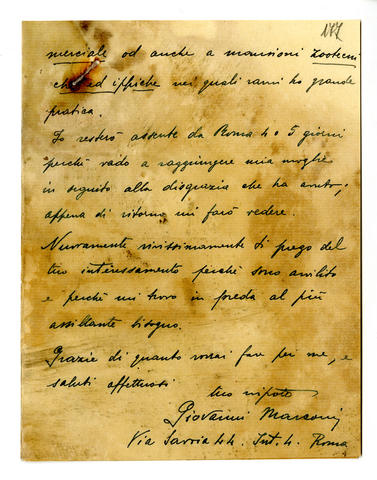 177
merciale od anche a mansioni zootecni
che ed ippiche nei quali rami ho grande
pratica.
Io resterò assente da Roma 4 o 5 giorni
perchè vado a raggiungere mia moglie
in seguito alla disgrazia che ha avuto;
appena di ritorno mi farò vedere.
Nuovamente vivissimamente ti prego del
tuo interessamento perchè sono avvilito
e perchè mi trovo in preda al più
assillante bisogno.
Grazie di quanto vorrai fare per me, e
saluti affettuosi
tuo nipote
Giovanni Marconi
Via Savoia 44. Int. 4. Roma